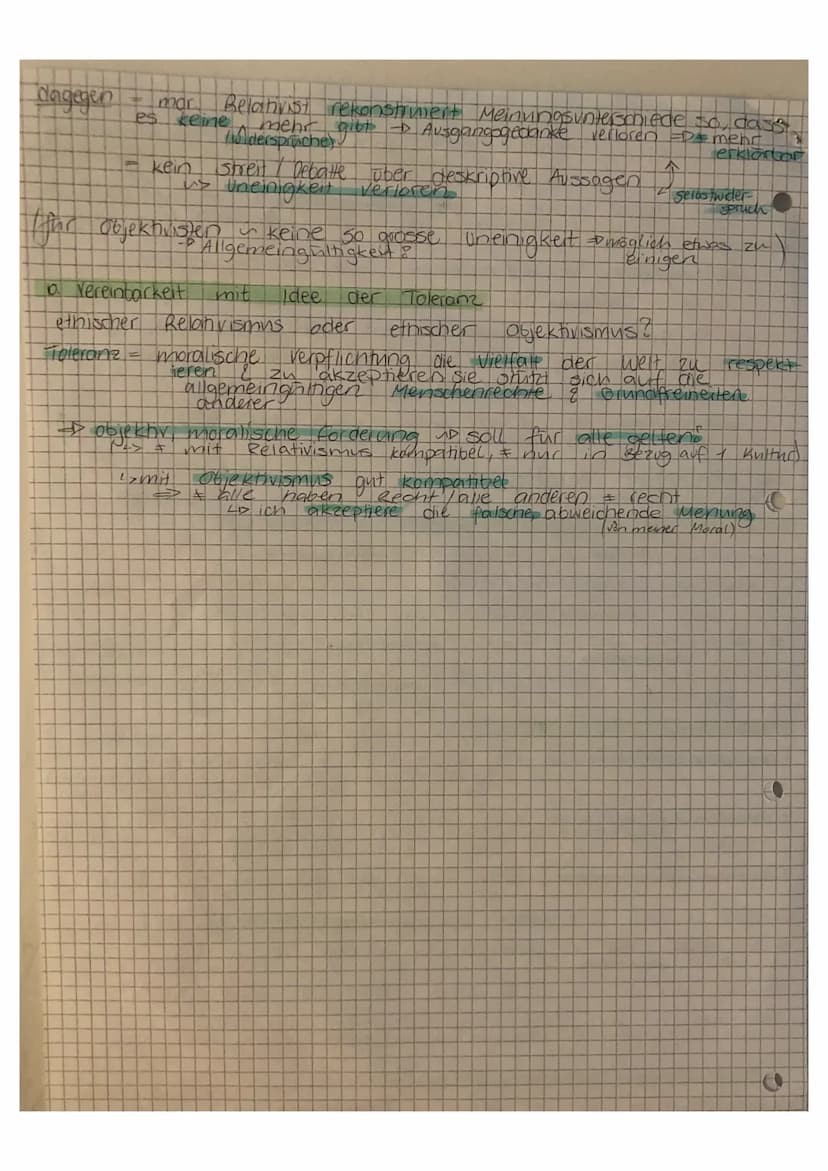 dagegen - mor. Relativist rekonstruiert Meinungsunterschiede so, dass
es keine mehr gibt → Ausgangsgedanke verloren => ≠ mehr
(Widersprüche) erklärbar
- kein Streit / Debatte über deskriptive Aussagen
↳ Uneinigkeit verloren selbstwider-
spruch
(für Objektivisten ~ keine so grosse Uneinigkeit => möglich etwas zu)
→ Allgemeingültigkeit? einigen
a Vereinbarkeit mit Idee der Toleranz
ethischer Relativismus oder ethischer Objektivismus?
Toleranz = moralische Verpflichtung die Vielfalt der Welt zu respekt-
ieren & zu akzeptieren. Sie stützt sich auf die
allgemeingültigen Menschenrechte & Grundfreiheiten
anderer
=> objektiv, moralische Forderung → soll für alle gelten
↳ ≠ mit Relativismus kompatibel, ≠ nur in Bezug auf 1 Kultur)
↳ mit Objektivismus gut kompatibel
=> ≠ alle haben Recht / alle anderen ≠ recht
↳ ich akzeptiere die falsche, abweichende Meinung
(von meiner Moral)